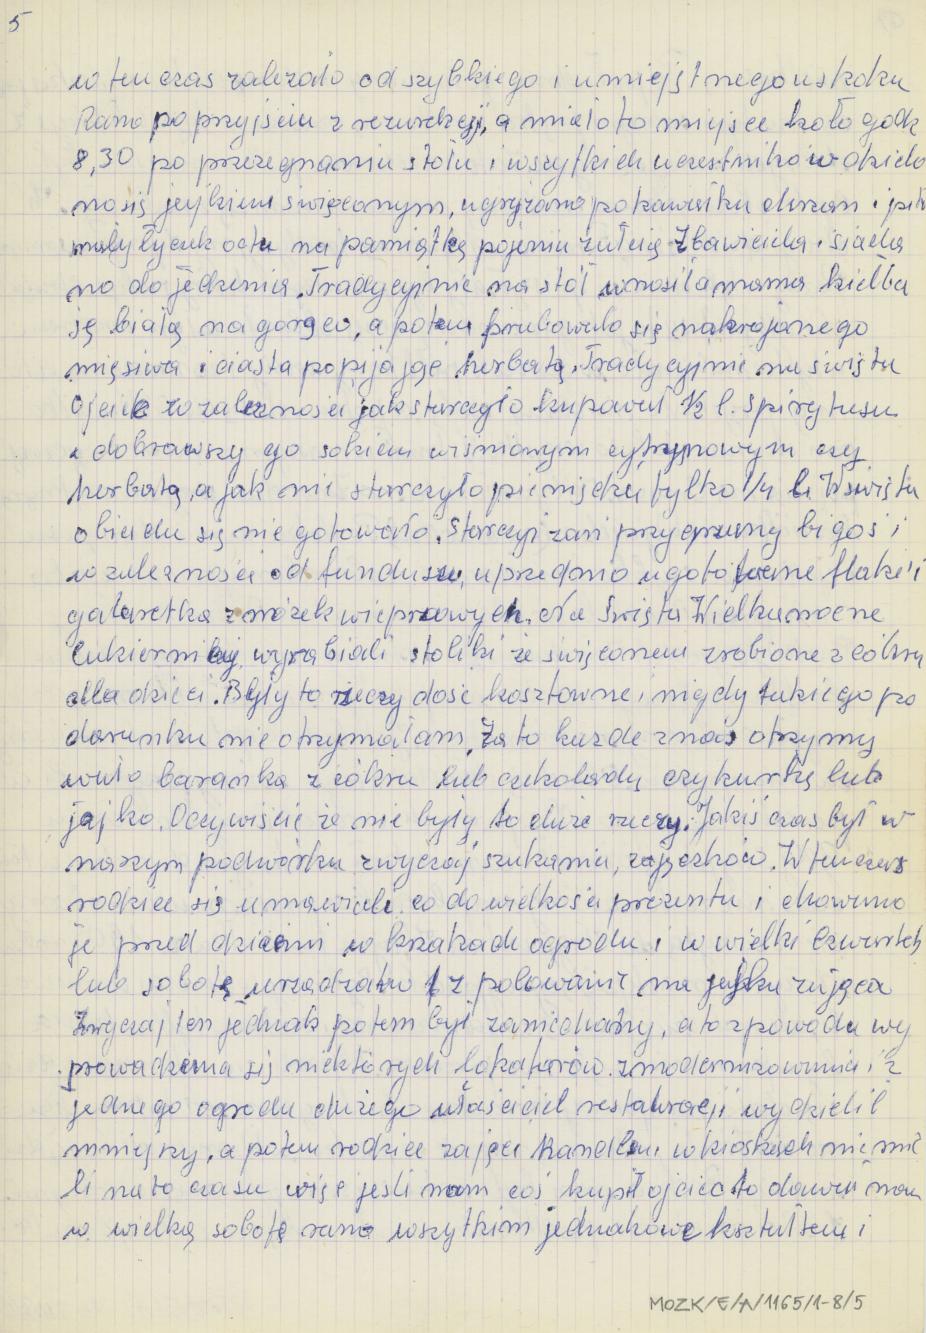 5
w ten czas zależało od szybkiego i umiejętnego uskoku
Rano po przyjściu z rezurekcji, a miało to miejsce koło godz
8,30 po przeżegnaniu stołu i wszytkich uczestników dzielo
no się jejkiem święconym, ugryzano po kawałku chrzan i pito
mały łyczek octu na pamiątkę pojenia żułcią Zbawiciela i siada
no do jedzenia. Tradycyjnie na stół wnosiła mama kiełba
sę białą na gorąco, a potem prubowało się nakrojonego
mięsiwa i ciasta popijając herbatą. Tradycyjnie na święta
Ojciec w zależności jak starczyło kupował 1/2 l. spirytusu
i dobrawszy go sokiem wiśniowym cytrynowym czy
herbatą, a jak nie starczyło pieniędzy tylko 1/4 l. W święta
obiadu się nie gotowało. Starczył zań przyprawny bigos i
w zależności od funduszu, uprzednio ugotowane flaki i
galaretka z nóżek wieprzowych. Na Święta Wielkanocne
Cukiernicy wyrabiali stoliki ze święconem zrobione z cókru
dla dzieci. Były to rzeczy dość kosztowne i nigdy takiego po
darunku nie otrzymałam, za to każde z nas otrzymy
wało baranka z cókru lub czekolady czy kurkę lub
jajko. Oczywiście że nie były to duże rzeczy. Jakiś czas był w
naszym podwórku zwyczaj szukania, zajączków. W ten czas
rodzice się umawiali co do wielkości prezentu i chowano
je przed dziećmi w krzakach ogrodu i w wielki Czwartek
lub sobotę urządzano z polowanie na jajka zająca
Zwyczaj ten jednak potem był zaniechany, a to z powodu wy
prowadzenia się niektórych lokatorów. zmodernizowania i z
jednego ogrodu dużego właściciel restauracji wydzielił
mniejszy, a potem rodzice zajęci handlem w kioskach nie mie
li na to czasu więc jeśli nam coś kupił ojciec to dawał nam
w wielką sobotę rano wszytkim jednakowe kształtem i
MOZK/E/A/1165/1-8/5